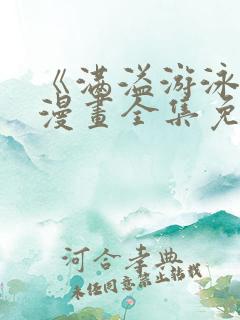 《满溢游泳
漫畫全集免
河合孝典
未经同意禁止转载